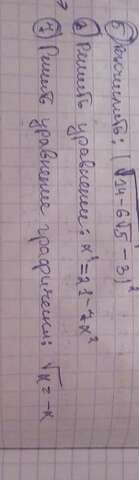 ⑤ Вычислить: (√14-6√5 - 3)²
⑥ Решить уравнение: x⁴ = 21-4x²
⑦ Решить уравнение графически: √x = -x